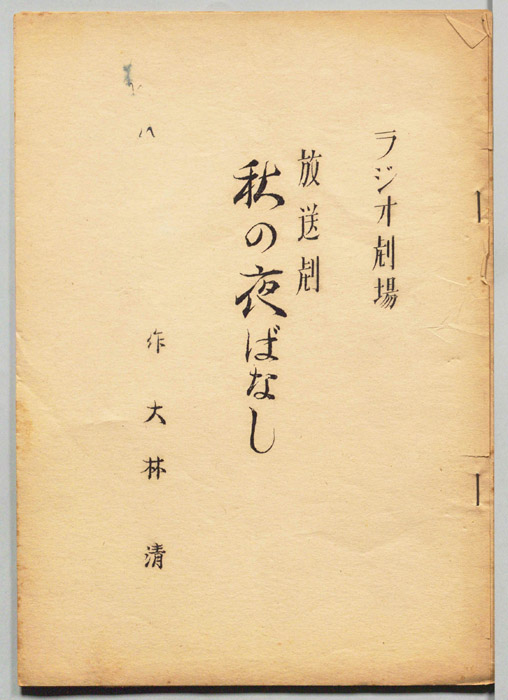 ラジオ劇場
放送劇
秋の夜ばなし
作 大林清